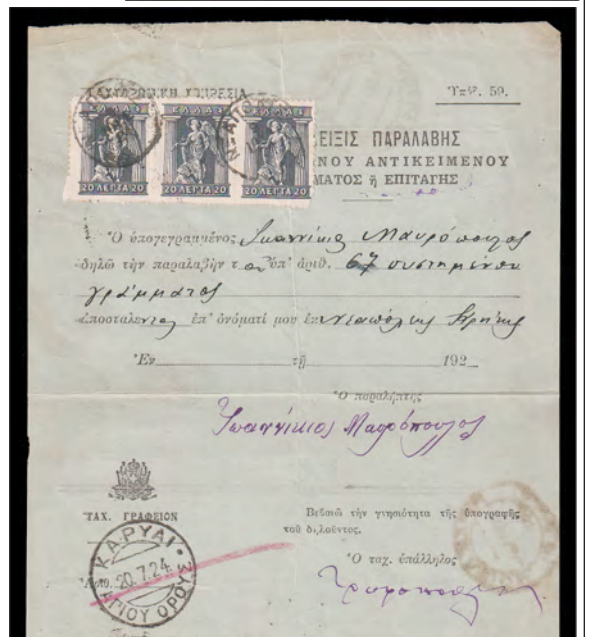 ΤΑΧΥΔΡΟΜΙΚΗ ΥΠΗΡΕΣΙΑ
Ὑπ. 50.
ΕΛΛΑΣ ΕΛΛΑΣ ΕΛΛΑΣ
20 ΛΕΠΤΑ 20 20 ΛΕΠΤΑ 20 20 ΛΕΠΤΑ 20
ΕΙΞΙΣ ΠΑΡΑΛΑΒΗΣ
ΝΟΥ ΑΝΤΙΚΕΙΜΕΝΟΥ
ΜΑΤΟΣ ἢ ΕΠΙΤΑΓΗΣ
Ὁ ὑπογεγραμμένος Ἰωαννίκιος Μαυρόπουλος
δηλῶ τὴν παραλαβὴν τοῦ ὑπ' ἀριθ. 67 συστημένου
γράμματος
ἀποσταλέντος ἐπ' ὀνόματί μου ἐκ Νεαπόλεως Κρήτης
Ἐν τῇ 192
Ὁ παραλήπτης
Ἰωαννίκιος Μαυρόπουλος
ΤΑΧ. ΓΡΑΦΕΙΟΝ
Βεβαιῶ τὴν γνησιότητα τῆς ὑπογραφῆς
τοῦ δηλοῦντος.
ΚΑΡΥΑΙ
Ὁ ταχ. ὑπάλληλος
Ἀριθ. 20.7.24
ΑΓΙΟΥ ΟΡΟΥΣ